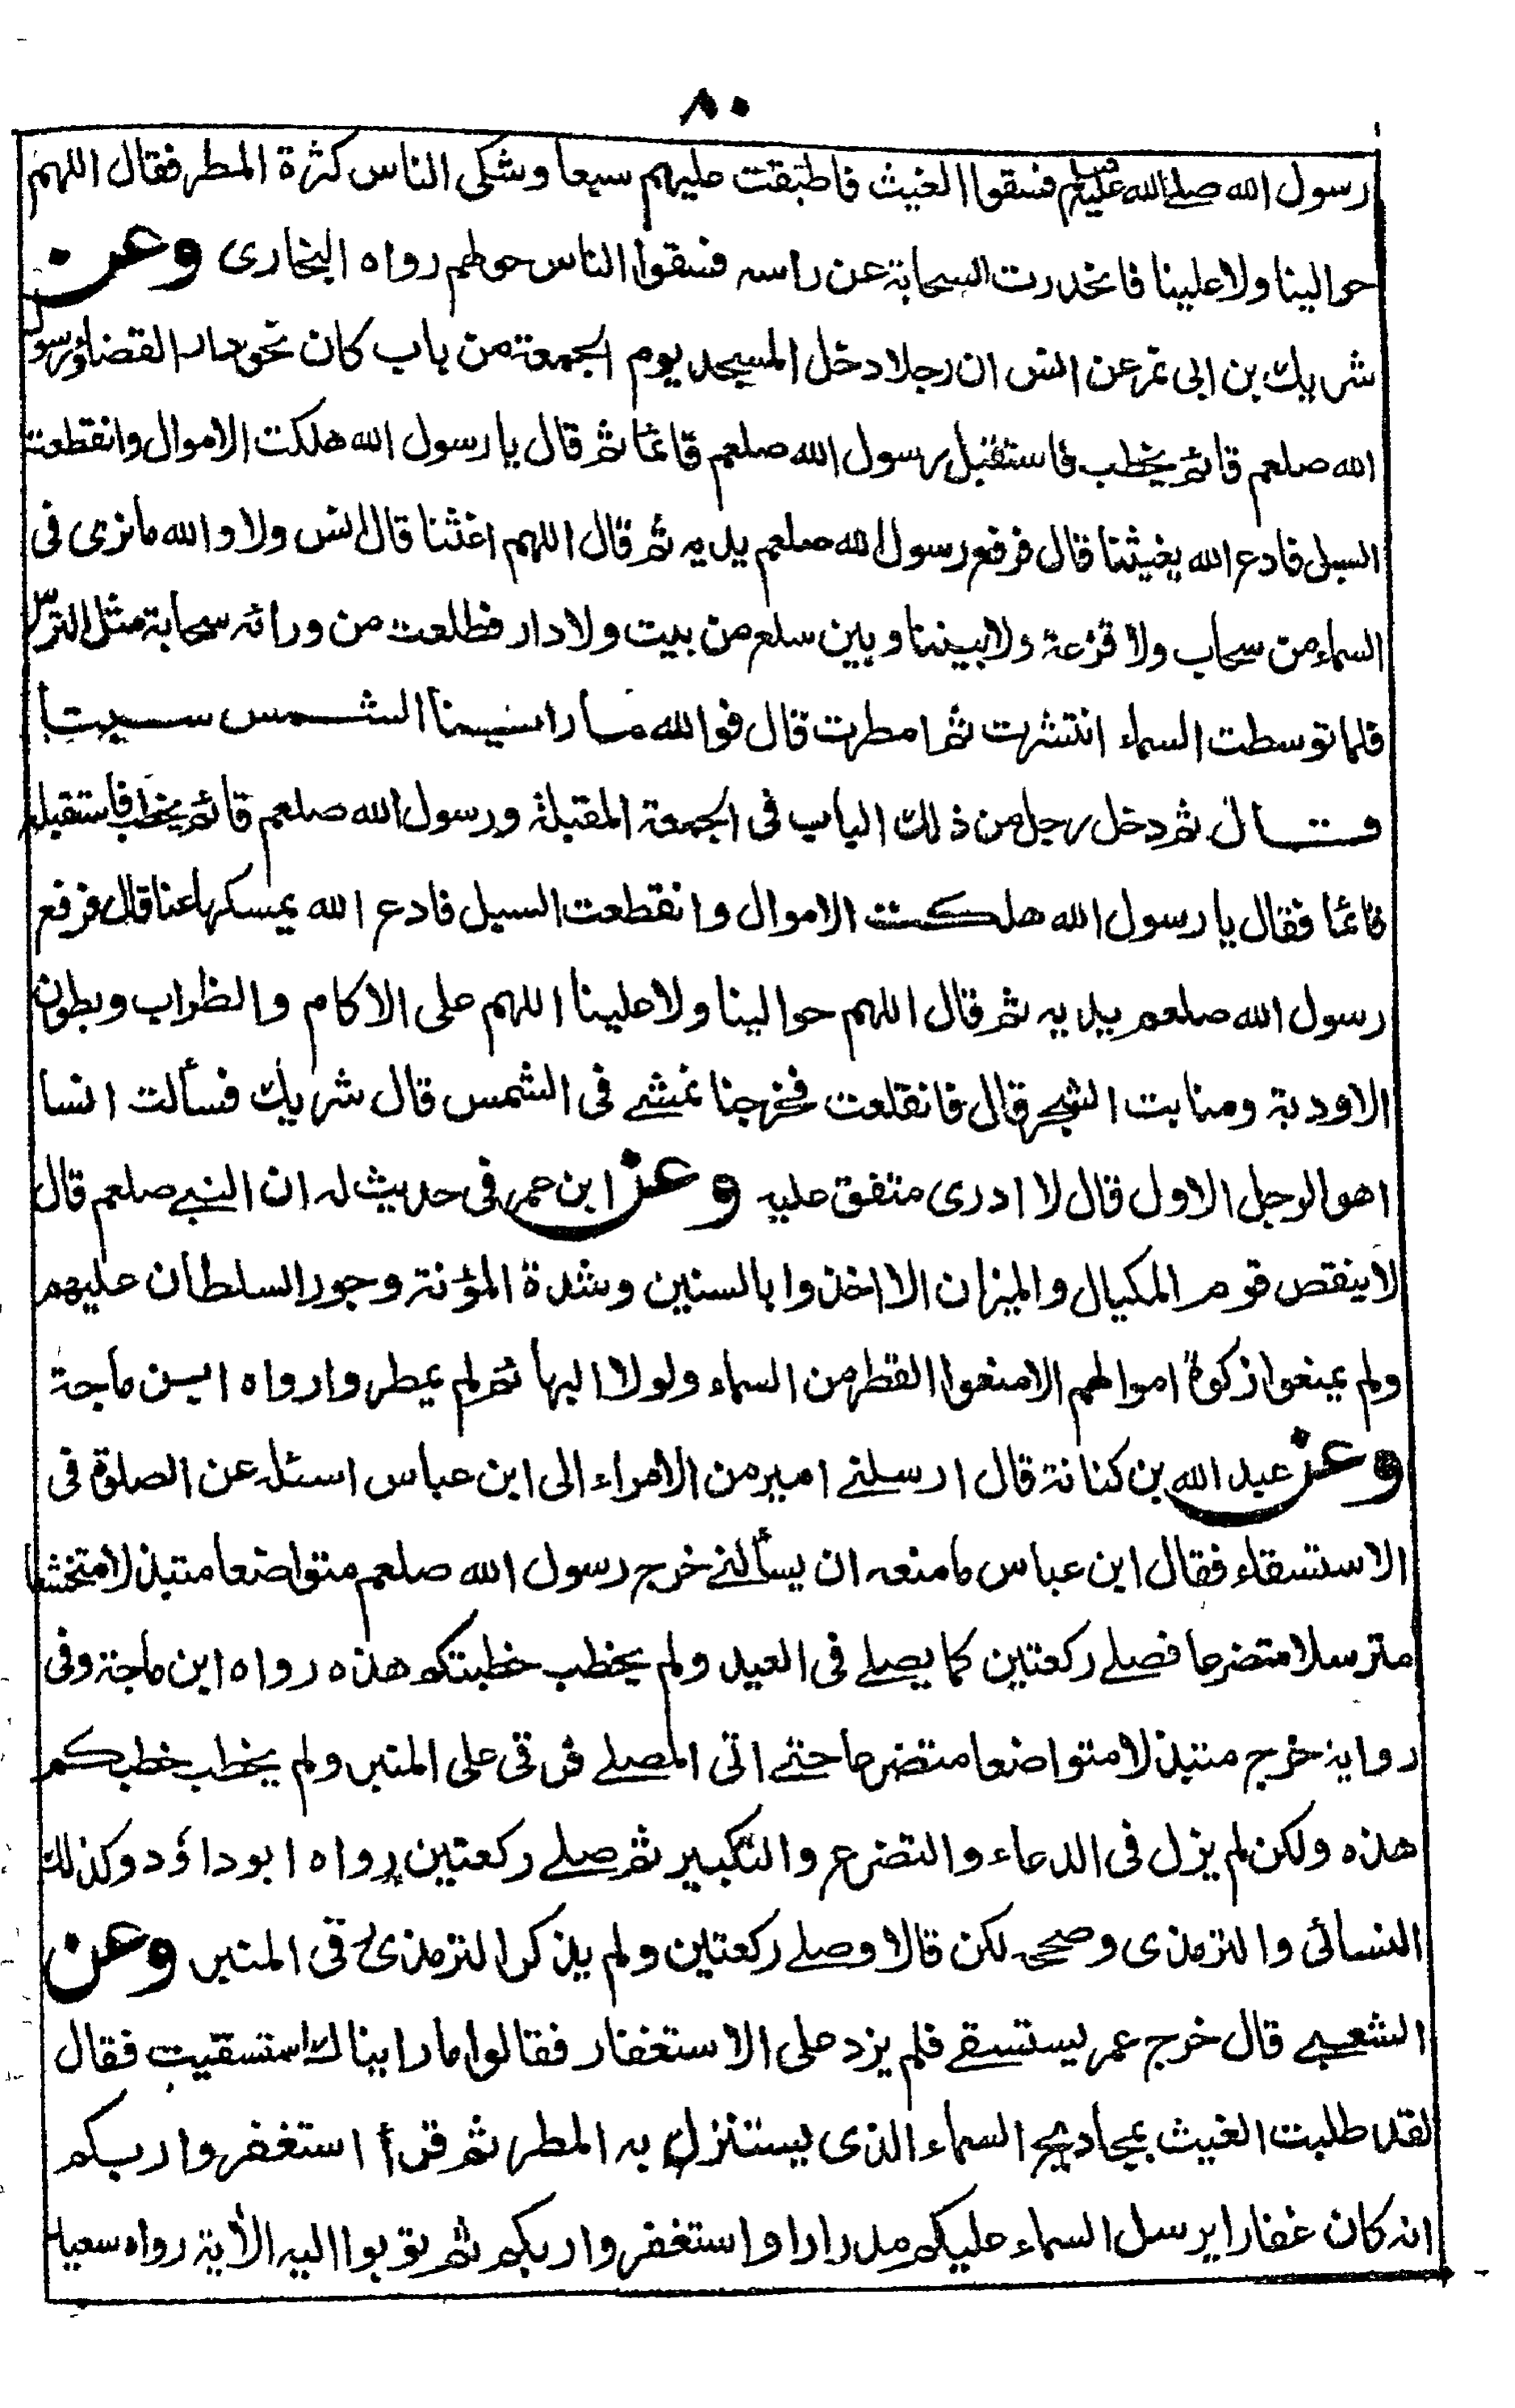 ٨٠
رسول الله صلى الله عليه وسلم فسقوا الغيث فاطبقت عليهم سبعا وشكى الناس كثرة المطر فقال اللهم
حوالينا ولا علينا فانحدرت السحابة عن راسه فسقوا الناس حولهم رواه البخارى وعن
شريك بن ابى نمر عن انس ان رجلا دخل المسجد يوم الجمعة من باب كان نحو دار القضاء ورسول
الله صلعم قائم يخطب فاستقبل رسول الله صلعم قائما ثم قال يا رسول الله هلكت الاموال وانقطعت
السبل فادع الله يغيثنا قال فرفع رسول الله صلعم يديه ثم قال اللهم اغثنا قال انس ولا والله ما نرى فى
السماء من سحاب ولا قزعة ولا بيننا وبين سلع من بيت ولا دار فطلعت من ورائه سحابة مثل الترس
فلما توسطت السماء انتشرت ثم امطرت قال فوالله ما راينا الشمس سبتا
قال ثم دخل رجل من ذلك الباب فى الجمعة المقبلة ورسول الله صلعم قائم يخطب فاستقبله
قائما فقال يا رسول الله هلكت الاموال وانقطعت السبل فادع الله يمسكها عنا قال فرفع
رسول الله صلعم يديه ثم قال اللهم حوالينا ولا علينا اللهم على الاكام والظراب وبطون
الاودية ومنابت الشجر قال فانقلعت فخرجنا نمشى فى الشمس قال شريك فسألت انسا
اهو الرجل الاول قال لا ادرى متفق عليه وعن ابن عمر فى حديث له ان النبى صلعم قال
لا ينقص قوم المكيال والميزان الا اخذوا بالسنين وشدة المؤنة وجور السلطان عليهم
ولم يمنعوا زكوة اموالهم الا منعوا القطر من السماء ولولا البهائم لم يمطروا رواه ابن ماجة
وعن عبد الله بن كنانة قال ارسلنى امير من الامراء الى ابن عباس اسئله عن الصلوة فى
الاستسقاء فقال ابن عباس ما منعه ان يسألنى خرج رسول الله صلعم متواضعا متبذلا متخشعا
مترسلا متضرعا فصلى ركعتين كما يصلى فى العيد ولم يخطب خطبتكم هذه رواه ابن ماجة وفى
رواية خرج متبذلا متواضعا متضرعا حتى اتى المصلى فرقى على المنبر ولم يخطب خطبكم
هذه ولكن لم يزل فى الدعاء والتضرع والتكبير ثم صلى ركعتين رواه ابو داؤد وكذلك
النسائى والترمذى وصححه لكن قالا وصلى ركعتين ولم يذكر الترمذى رقى المنبر وعن
الشعبى قال خرج عمر يستسقى فلم يزد على الاستغفار فقالوا ما رايناك استسقيت فقال
لقد طلبت الغيث بمجاديح السماء الذى يستنزل به المطر ثم قرأ استغفروا ربكم
انه كان غفارا يرسل السماء عليكم مدرارا واستغفروا ربكم ثم توبوا اليه الأية رواه سعيد